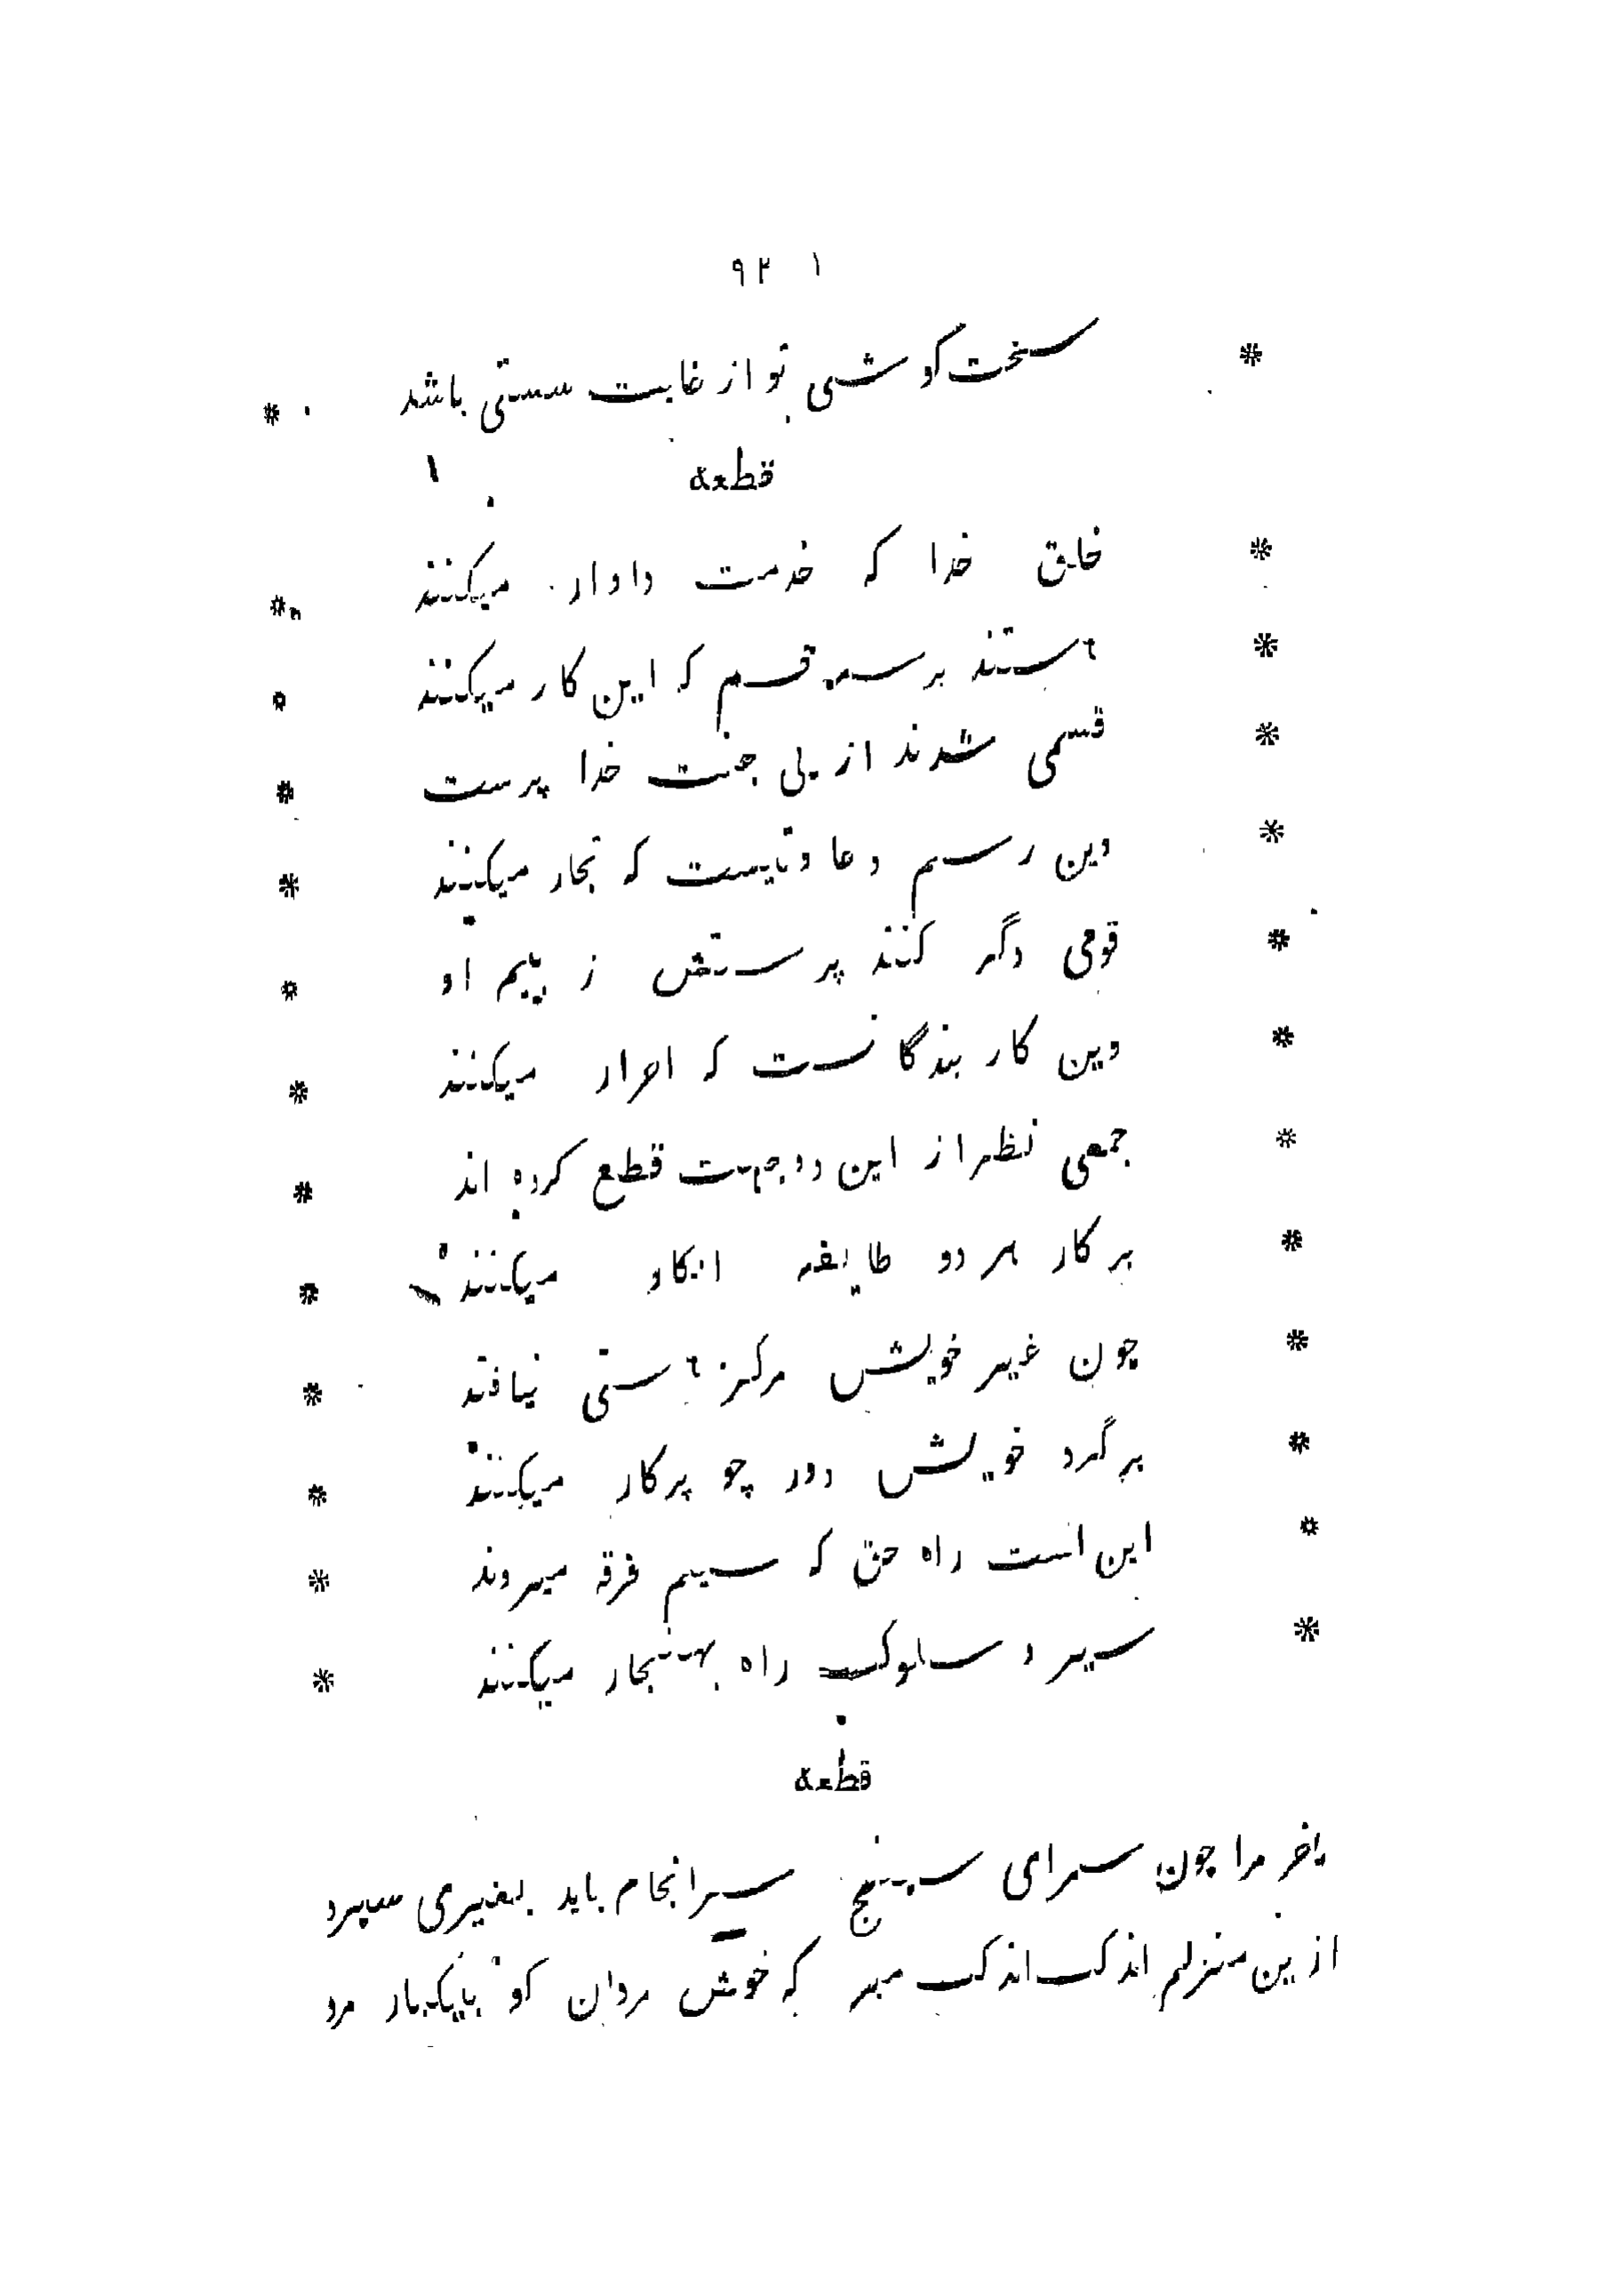 ۹۲ ۱
* سخت کوشی تو از غایت سستی باشد *
قطعه
* خلق خدا که خدمت دادار میکنند *
* هستند بر سه قسم که این کار میکنند *
* قسمی شدند از پی جنت خدا پرست *
* وین رسم و عادتیست که تجار میکنند *
* قومی دگر کنند پرستش ز بیم او *
* وین کار بندگانست که احرار میکنند *
* جمعی نظر از این دو جهت قطع کرده اند *
* بر کار هر دو طایفه انکار میکنند *
* چون غیر خویش مرکز هستی نیافتند *
* بر گرد خویش دور چو پرکار میکنند *
* این است راه حق که سیم فرقه میروند *
* سیر و سلوک راه بهنجار میکنند *
قطعه
مرا چون سرای سپنج سرانجام باید بغیری سپرد
از ین منزلم اندک اندک مبر که خوش مردان کو بیکبار مرد